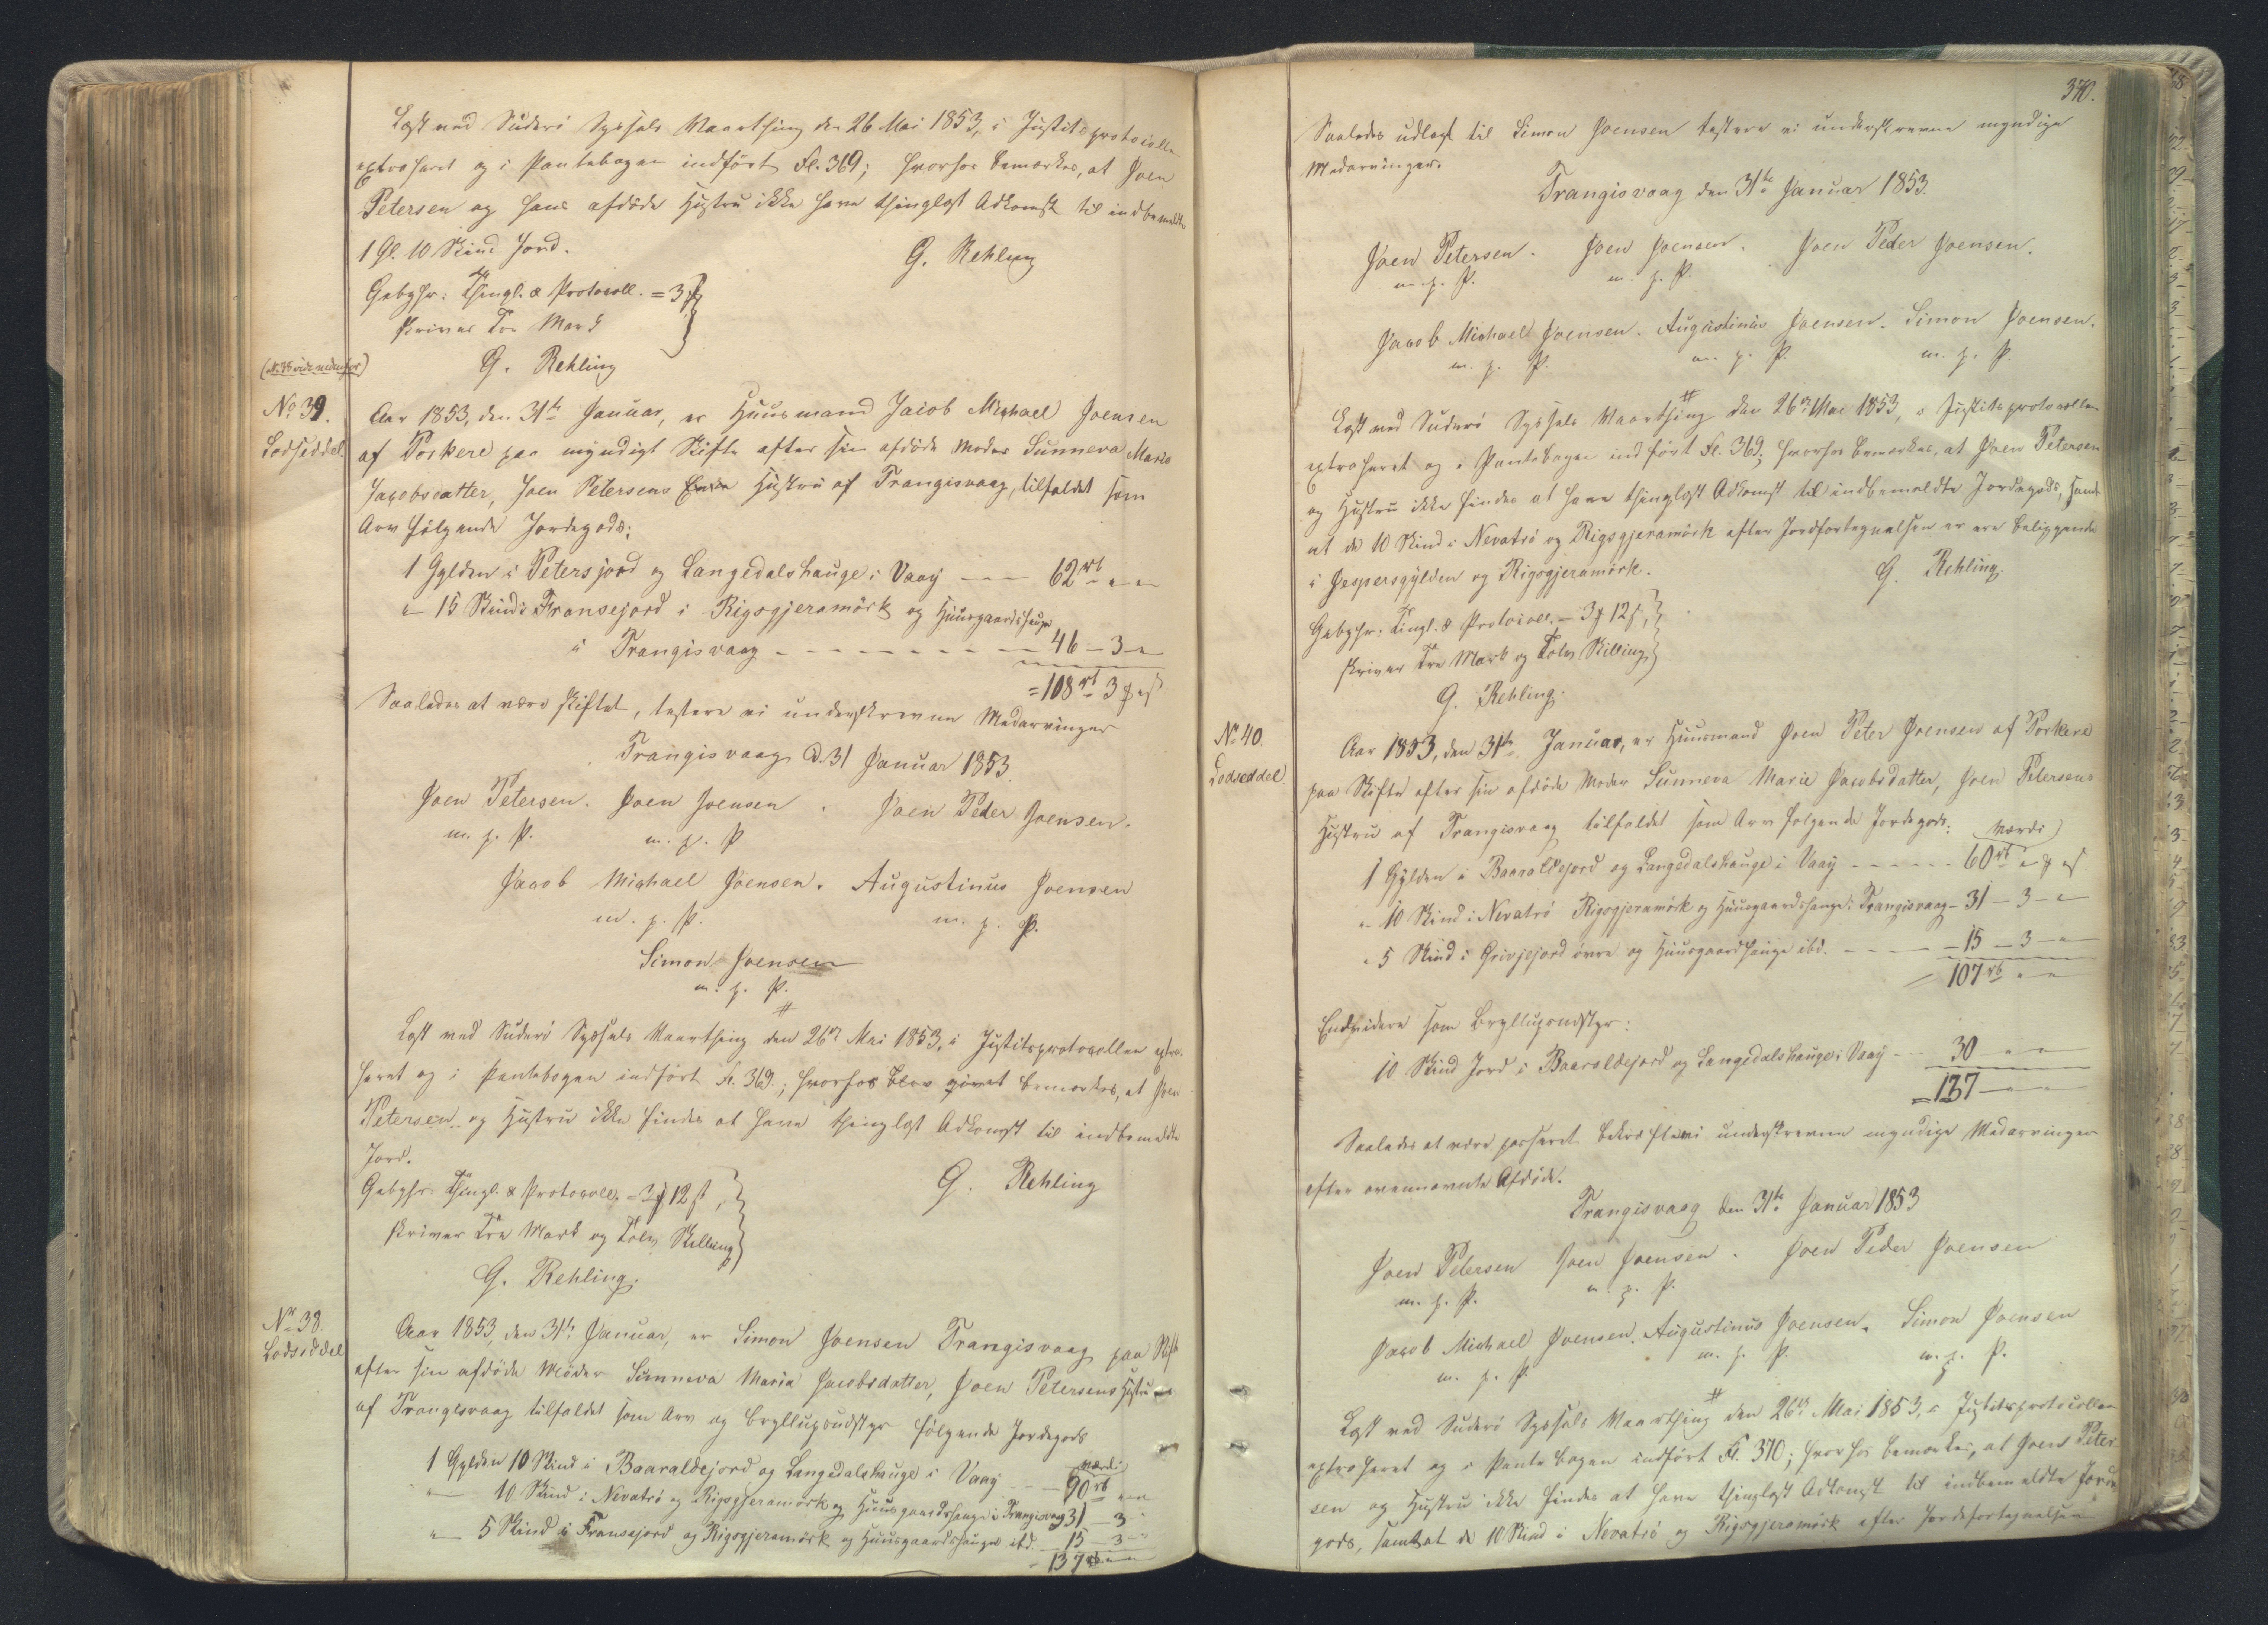 Læst ved Suderö Syssels Vaarthing den 26 Mai 1853, i Justitsprotocollen
extraheret og i Pantebogen indført Fl. 369; hvorhos bemærkes, at Joen
Petersen og hans afdöde Hustru ikke have thinglæst Adkomst til indbemeldte
1 Gl. 10 Skind Jord.
G. Rehling
Gebyhr: Thingl. & Protocoll. = 3 ℳ
skriver Tre Mark
G. Rehling
No 39.
Lodseddel.
Aar 1853, den 31te Januar, er Huusmand Jacob Michael Joensen
af Porkere paa myndigt Skifte efter sin afdöde Moder Sunneva Maria
Jacobsdatter, Joen Petersens Hustru af Trangisvaag, tilfaldet som
Arv følgende Jordegods:
1 Gylden i Petersjord og Langedalshauge i Vaag --- 62 rb " "
" 15 Skind i Fransejord i Rigsgjeramörk og Huusgaardshauge
i Trangisvaag - - - - - - - 46 - 3 - "
= 108 rb 3 ℳ " ß
Saaledes at være skiftet, testere vi underskrevne Medarvinger
Trangisvaag d. 31 Januar 1853.
Joen Petersen. Joen Joensen. Joen Peder Joensen.
m. p. P. m. p. P
Jacob Michael Joensen. Augustinus Joensen
m. p. P. m. p. P.
Simon Joensen
m. p. P.
Læst ved Suderö Syssels Vaarthing den 26de Mai 1853, i Justitsprotocollen extra-
heret og i Pantebogen indført Fl. 369.; hvorhos bemærkes, at Joen
Petersen og Hustru ikke findes at have thinglæst Adkomst til indbemeldte
Jord.
G. Rehling
Gebyhr: Thingl. & Protocoll. = 3 ℳ 12 ß,
skriver Tre Mark og Tolv Skilling
G. Rehling.
No 38.
Lodseddel
Aar 1853, den 31te Januar, er Simon Joensen Trangisvaag paa Skifte
efter sin afdöde Moder Sunneva Maria Jacobsdatter, Joen Petersens Hustru
af Trangisvaag tilfaldet som Arv og Bryllupsudstyr følgende Jordegods
Værdi
1 Gylden 10 Skind i Baaraldejord og Langedalshauge i Vaag - - - 90 rb " "
" - 10 Skind i Nevatrö og Rigsgjeramörk og Huusgaardshauge i Trangisvaag 31 - 3 "
" - 5 Skind i Fransejord og Rigsgjeramörk og Huusgaardshauge ibd. - 15 - 3 - "
= 137 rb " "
370.
Saaledes udlagt til Simon Joensen testere vi underskrevne myndige
Medarvinger.
Trangisvaag den 31te Januar 1853.
Joen Petersen. Joen Joensen. Joen Peder Joensen.
m. p. P. m. p. P.
Jacob Michael Joensen. Augustinus Joensen. Simon Joensen.
m. p. P. m. p. P. m. p. P.
Læst ved Suderö Syssels Vaarthing den 26de Mai 1853, i Justitsprotocollen
extraheret og i Pantebogen indført Fl. 369; hvorhos bemærkes, at Joen Petersen
og Hustru ikke findes at have thinglæst Adkomst til indbemeldte Jordegods, samt
at de 10 Skind i Nevatrö og Rigsgjeramörk efter Jordfortegnelsen er ere beliggende
i Jespersgylden og Rigsgjeramörk.
G. Rehling.
Gebyhr: Tingl. & Protocoll. = 3 ℳ 12 ß,
skriver Tre Mark og Tolv Skilling
G. Rehling.
No 40.
Lodseddel
Aar 1853, den 31te Januar, er Huusmand Joen Peter Joensen af Porkere
paa Skifte efter sin afdöde Moder Sunneva Marie Jacobsdatter, Joen Petersens
Hustru af Trangisvaag tilfaldet som Arv følgende Jordegods:
Værdi
1 Gylden i Baaraldejord og Langedalshauge i Vaag - - - - - - 60 rb " ℳ " ß
" - 10 Skind i Nevatrö Rigsgjeramörk og Huusgaardshauge i Trangisvaag - 31 - 3 - "
" 5 Skind i Grivjejord övre og Huusgaardshauge ibd. - - - - 15 - 3 - "
107 rb " "
Endvidere som Bryllupsudstyr:
10 Skind Jord i Baaraldejord og Langedalshauge i Vaag - - 30 " "
= 137 " "
Saaledes at være passeret bekræfte vi underskrevne myndige Medarvinger
efter ovennævnte Afdöde.
Trangisvaag den 31te Januar 1853
Joen Petersen Joen Joensen. Joen Peder Joensen
m. p. P. m. p. P.
Jacob Michael Joensen. Augustinus Joensen. Simon Joensen
m. p. P. m. p. P. m. p. P.
Læst ved Suderö Syssels Vaarthing den 26de Mai 1853, i Justitsprotocollen
extraheret og i Pantebogen indført Fl. 370; hvorhos bemærkes, at Joen Peter-
sen og Hustru ikke findes at have thinglæst Adkomst til indbemeldte Jorde-
gods, samt at de 10 Skind i Nevatrö og Rigsgjeramörk efter Jordfortegnelsen